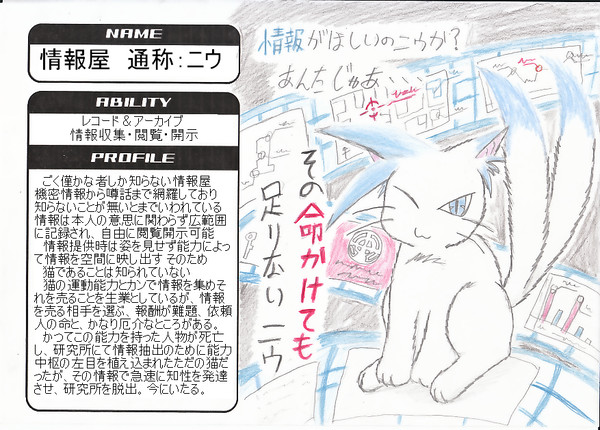 NAME
情報屋　通称：ニウ
ABILITY
レコード＆アーカイブ
情報収集・閲覧・開示
PROFILE
ごく僅かな者しか知らない情報屋
機密情報から噂話まで網羅しており
知らないことが無いとまでいわれている
情報は本人の意思に関わらず広範囲
に記録され、自由に閲覧開示可能
情報提供時は姿を見せず能力によっ
て情報を空間に映し出す そのため
猫であることは知られていない
猫の運動能力とカンで情報を集めそ
れを売ることを生業としているが、情報
を売る相手を選ぶ、報酬が難題、依頼
人の命と、かなり厄介なところがある。
かつてこの能力を持った人物が死亡
し、研究所にて情報抽出のために能力
中枢の左目を植え込まれたただの猫だ
ったが、その情報で急速に知性を発達
させ、研究所を脱出。今にいたる。
情報がほしいのニウか？
あんたじゃあ、、、
その命かけても
足りないニウ